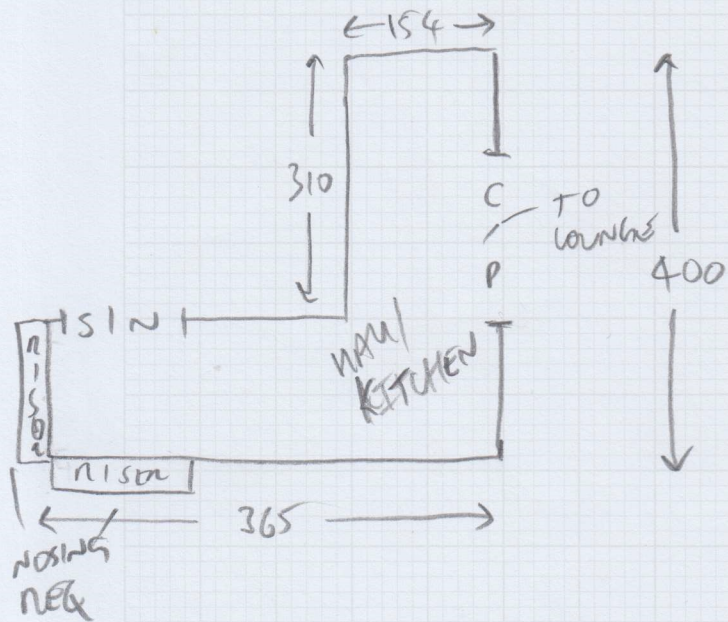 154
310
C
P
TO
LOUNGE
400
S I N
HALL/
KITCHEN
RISER
RISER
365
NOSING
REQ